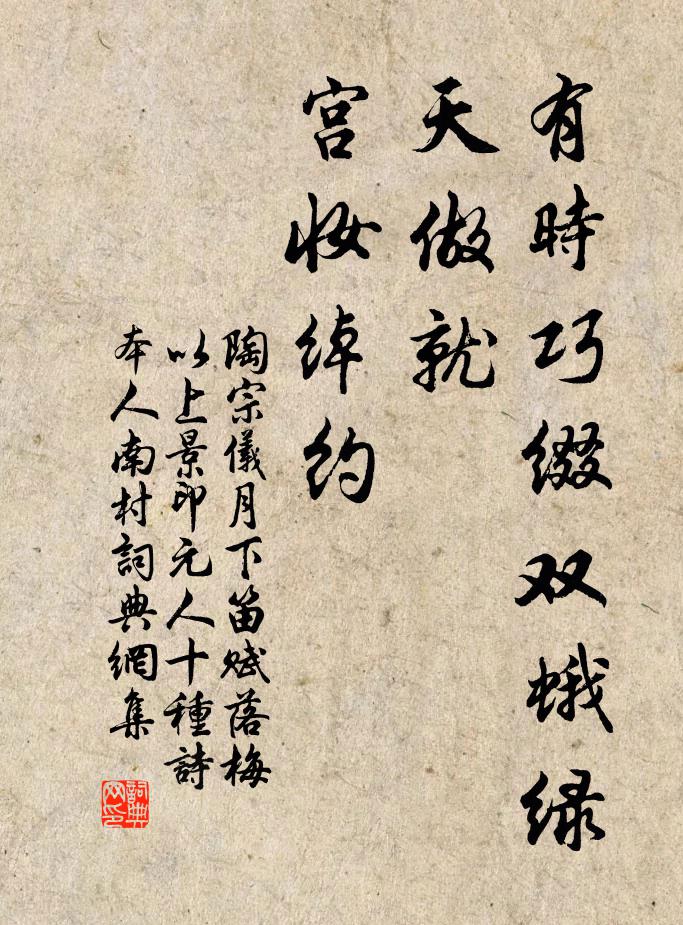 有時巧綴双蛾绿
天做就
宫妝绰约
陶宗儀月下笛赋落梅
以上景印元人十種詩
本人南村詞典網集
詞典
网印